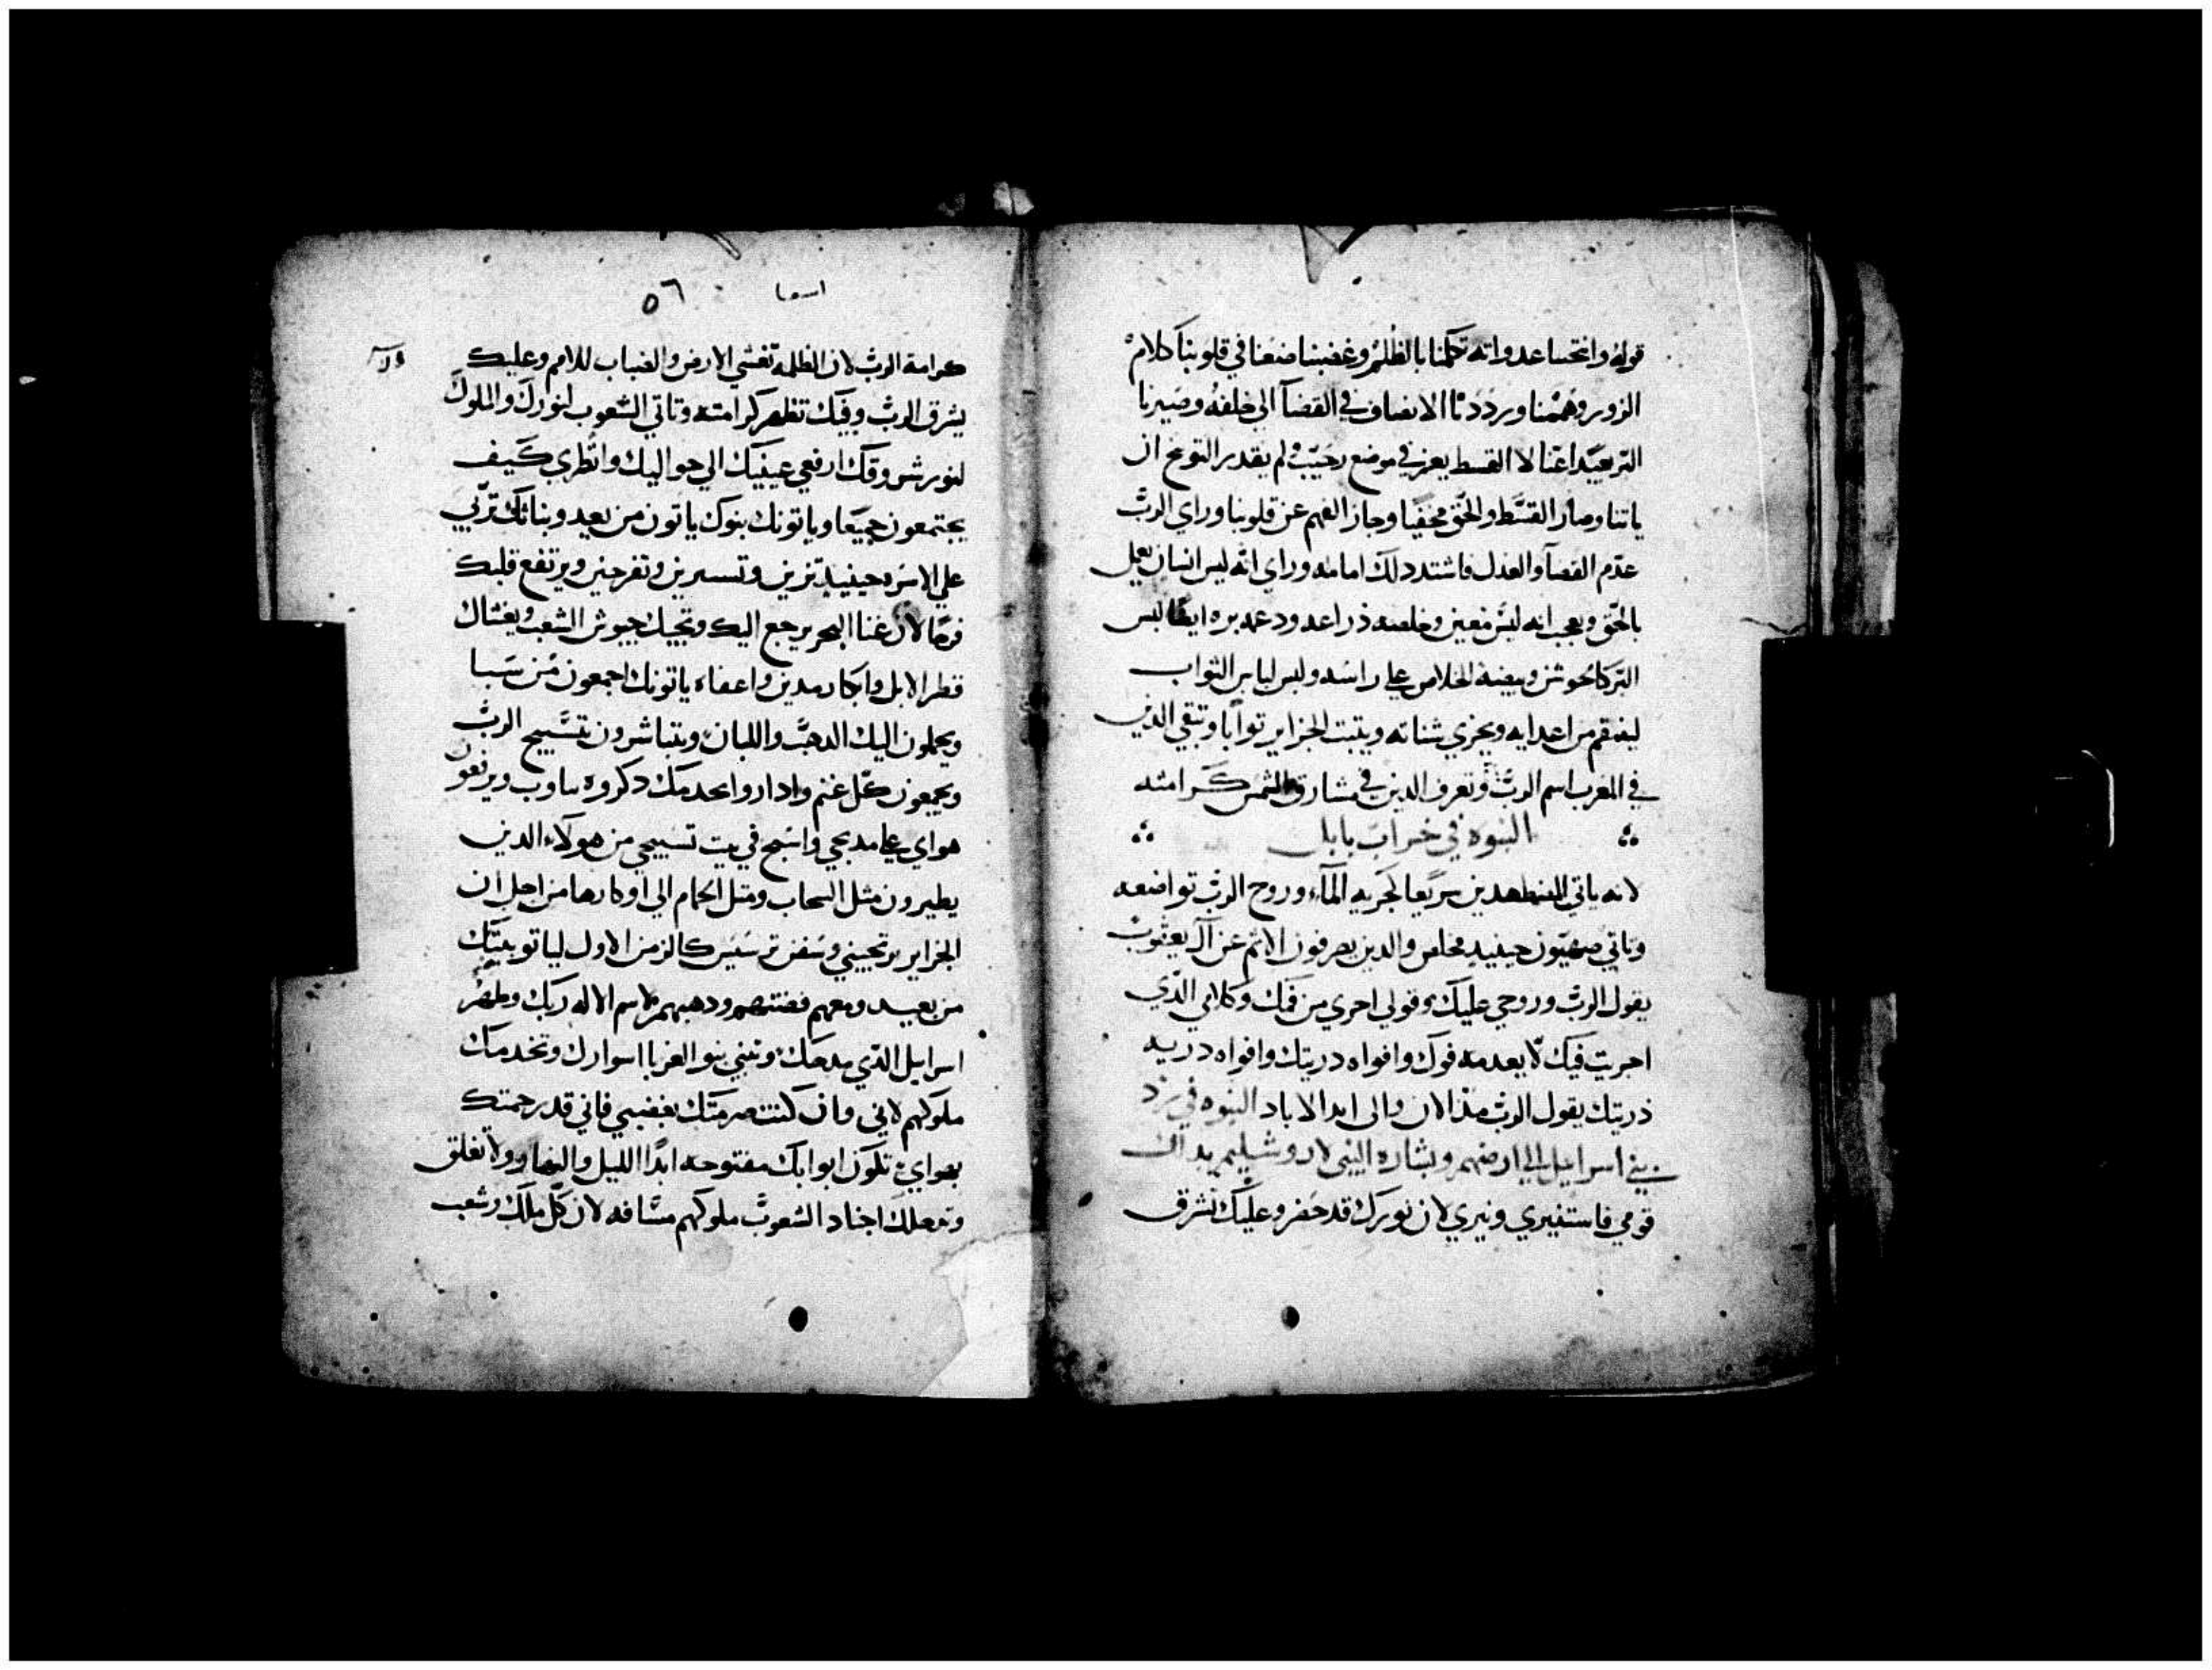 قوله واغتحسا عدواته تكلمنا بالظلم وغضبنا ضغنا في قلوبنا كلام
الزور وهممنا ورددنا الانصاف في القضآ الي خلفه وصيرنا
البر بعيدا عنا لان القسط يعز في موضع رحيب ولم يقدر التوبخ ان
ياتنا وصار القسط والحق مخفيا وجاز الفهم عن قلوبنا وراي الرب
عدم القصآ والعدل فاشتد دلك امامه وراي انه ليس انسان يعمل
بالحق ويعجب انه ليس معين وخلصه ذراعه ودعمه بره ايضا لبس
البر كالجوشن وبيضة الخلاص علي راسه ولبس لباس الثواب
لينتقم من اعدايه ويخزي شناته ويتبت الجزاير توابا وتبقي الدين
في المغرب اسم الرب وتعرف الدين في مشارق الشمس كرامته
النبوه في خراب بابل
لانه ياتي المضطهدين سريعا كجريه المآء وروح الرب تواضعه
وياتي صهيون حينيد مخلص والدين يصرفون الاثم عن آل يعقوب
يقول الرب وروحي عليك وقولي اجري من فمك وكلامي الذي
اجريت فيك لا يعدمه فوك وافواه دريتك وافواه دريه
ذريتك يقول الرب مند الان والي ابد الاباد النبوه في رد
بني اسرايل الي ارضهم وبشارة النبي لاروشليم بداك
قومي فاستنيري ونيري لان نورك قد حضر وعليك تشرق
اسعيا
٥٦
كرامة الرب لان الظلمة تغشي الارض والضباب للامم وعليك
يشرق الرب وفيك تظهر كرامته وتاتي الشعوب لنورك والملوك
لنور شروقك ارفعي عينيك الي حواليك وانظري كيف
يجتمعون جميعا وياتونك بنوك ياتون من بعيد وبناتك تربي
علي الاسره حينيد ترين وتسرين وتفرحين ويرتفع قلبك
فرحا لان غنا البحر يرجع اليك وتجيك جيوش الشعب ويغشاك
قطر الابل وابكار مدين واعفاء ياتونك اجمعون من سبا
ويحملون اليك الدهب واللبان ويتباشرون بتسبيح الرب
ويجمعون كل غنم وادار واىحدمك دكروه ىىاوب ويرىعون
هواي علي مدبحي واسبح في بيت تسبيحي من هولآء الدين
يطيرون مثل السحاب ومثل الحمام الي اوكارها من اجل ان
الجزاير ترتجيني وسفن ترسيس كالزمن الاول لياتو ببنيك
من بعيد ومعهم فضتهم ودهبهم لاسم الاله ربك وطهر
اسرايل الذي مدحك وتبني بنو الغربا اسوارك وتخدمك
ملوكهم لاني وان كنت صرمتك بغضبي فاني قد رحمتك
بهواي تكون ابوابك مفتوحه ابدا الليل والنهار ولا تغلق
وتدخلك اجناد الشعوب ملوكهم مساقه لان كل ملك وشعب